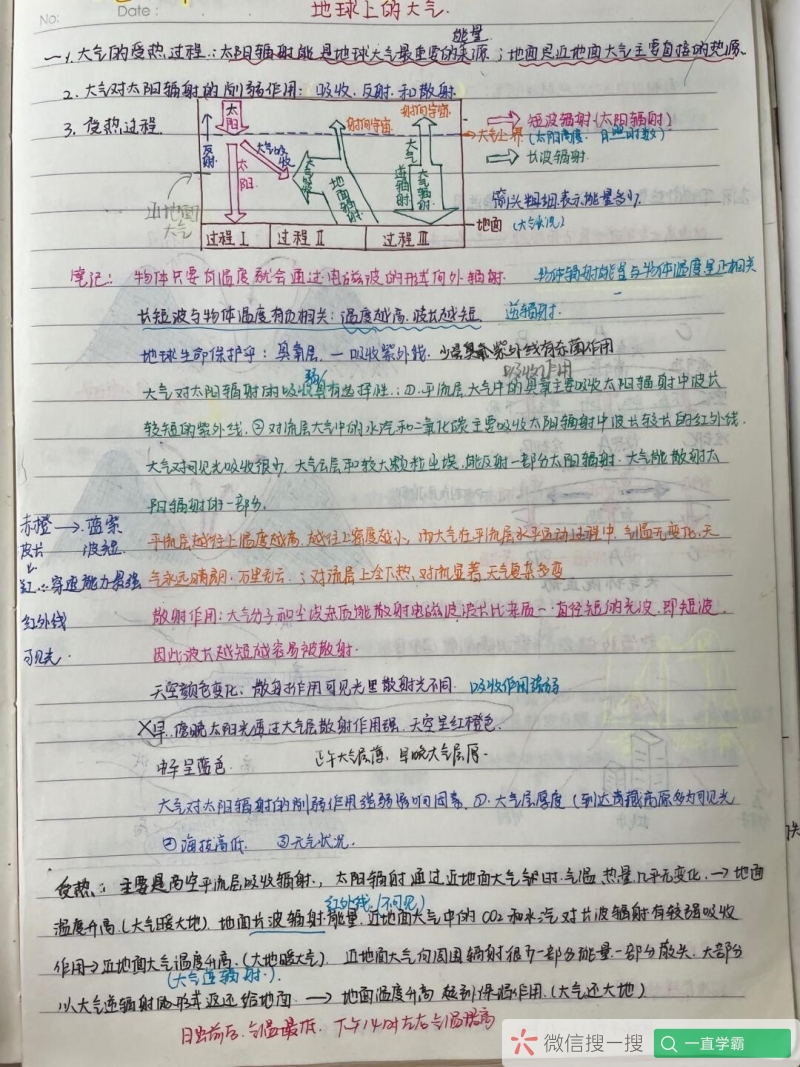 No:
Date:
地球上的大气.
能量
一1.大气的受热过程.:太阳辐射能是地球大气最重要的来源;地面是近地面大气主要直接的热源.
2.大气对太阳辐射的削弱作用:吸收.反射.和散射.
3.受热过程.
太阳
射向宇宙
射向宇宙
短波辐射(太阳辐射)
大气上界
(太阳高度
长波辐射.
反射
太阳
大气吸收
大气吸收
地面辐射
大气逆辐射
大气辐射
箭头粗细表示能量多少.
近地面大气
地面
(大气状况)
过程Ⅰ
过程Ⅱ
过程Ⅲ
笔记:物体只要有温度就会通过电磁波的形式向外辐射.
物体辐射能量与物体温度呈正相关
长短波与物体温度有负相关:温度越高.波长越短.
逆辐射.
地球生命保护伞:臭氧层.一吸收紫外线.少量紫外线有杀菌作用
吸收作用
大气对太阳辐射的吸收具有选择性:①.平流层大气中的臭氧主要吸收太阳辐射中波长
较短的紫外线.②对流层大气中的水汽和二氧化碳主要吸收太阳辐射中波长较长的红外线.
大气对可见光吸收很少.大气云层和较大颗粒尘埃.能反射一部分太阳辐射.大气能散射太
阳辐射的一部分.
赤橙→蓝紫
波长 波短
平流层越往上温度越高.越往上密度越小,而大气在平流层水平运动过程中.气温无变化.天
红:穿透能力最强
气永远晴朗.万里无云.;对流层上冷下热.对流显著.天气复杂多变
红外线
散射作用:大气分子和尘埃杂质能散射电磁波波长比杂质直径短的光波.即短波.
可见光.
因此波长越短越容易被散射.
天空颜色变化:散射作用可见光里散射光不同.
吸收作用强弱
早.傍晚太阳光通过大气层散射作用强.天空呈红橙色.
中午呈蓝色.
正午大气层薄,早晚大气层厚.
大气对太阳辐射的削弱作用强弱影响因素.①.大气层厚度(到达青藏高原多为可见光
②海拔高低.③天气状况.
受热:主要是高空平流层吸收辐射.,太阳辐射通过近地面大气时.气温.热量.几乎无变化.→地面
红外线(不可见)
温度升高.(太阳暖大地).地面长波辐射能量.近地面大气中的CO2和水汽对长波辐射有较强吸收
作用→近地面大气温度升高.(大地暖大气).近地面大气向周围辐射很多一部分能量.一部分散失.大部分
(大气逆辐射.)
以大气逆辐射的形式返还给地面.→地面温度升高起到保温作用.(大气还大地)
日出前后.气温最低.下午14时左右气温最高
微信搜一搜
一直学霸